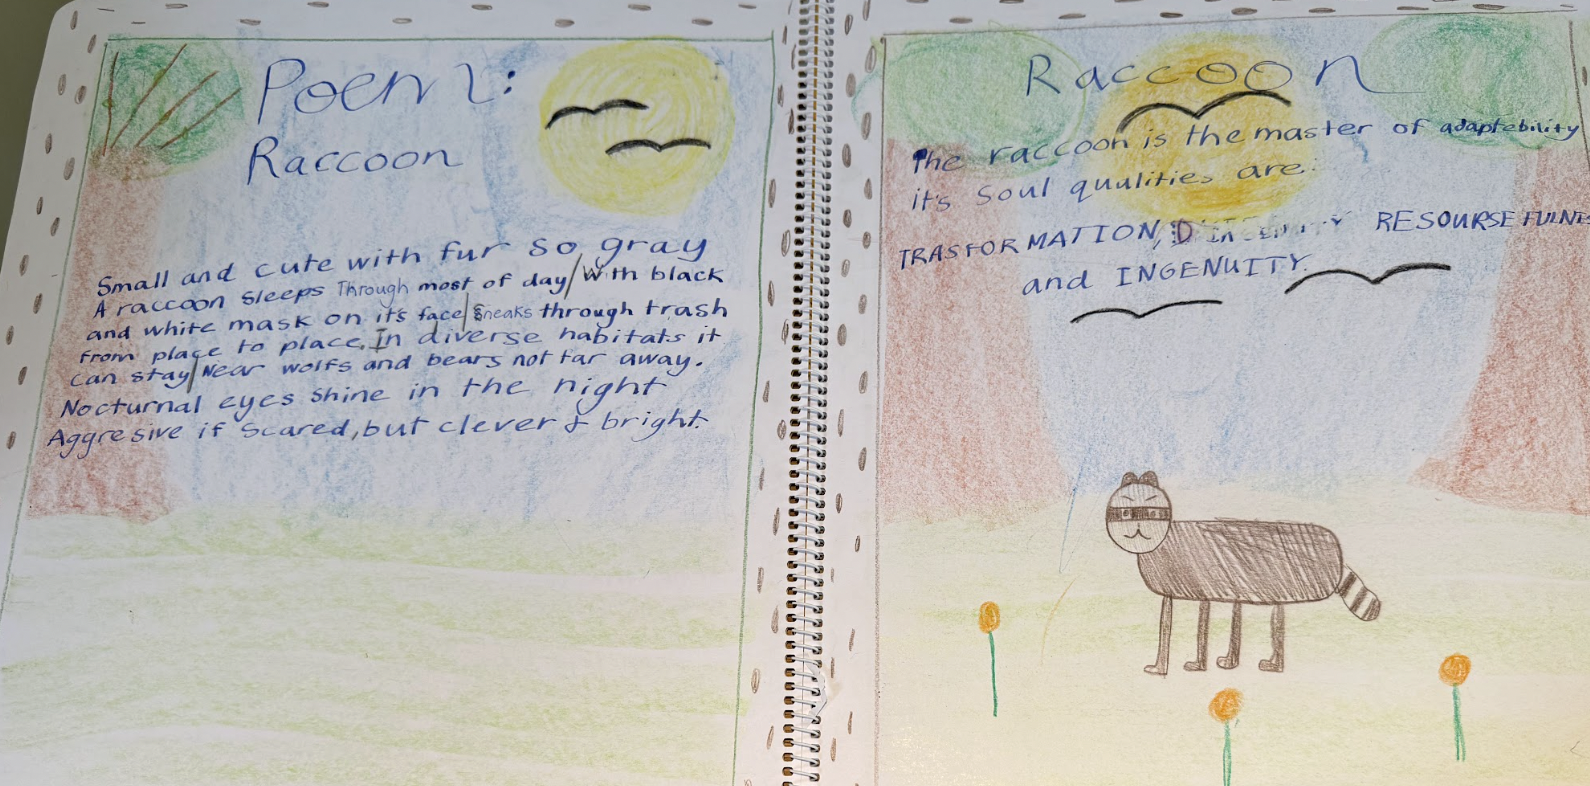 Poem 2:
Raccoon
Small and cute with fur so gray
A raccoon sleeps Through most of day/With black
and white mask on it's face/Sneaks through trash
from place to place, In diverse habitats it
can stay/Near wolfs and bears not far away.
Nocturnal eyes shine in the night
Aggresive if scared, but clever & bright.
Raccoon
The raccoon is the master of adaptebility
it's soul qualities are:
TRASFORMATION, RESOURSEFULNES
and INGENUITY.